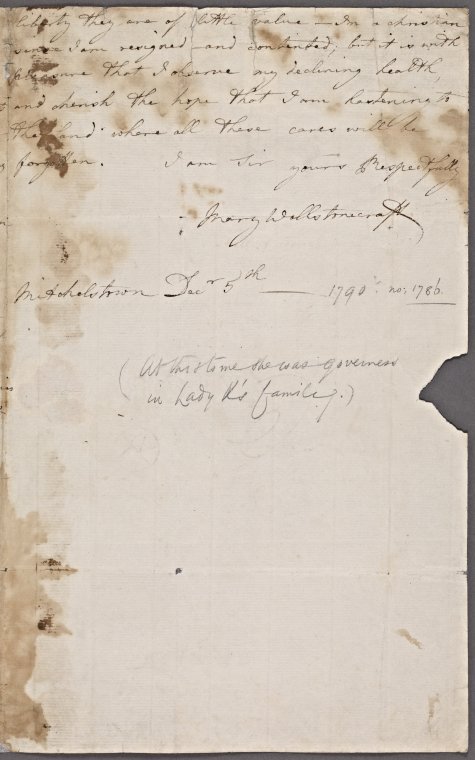 liberty they are of little value – In a christian
sense I am resigned – and contented; but it is with
pleasure that I observe my declining health,
and cherish the hope that I am hastening to
the land where all these cares will be
forgotten. I am Sir yours Respectfully
Mary Wollstonecraft
Mitchelstown Decr 5th — 1790 no; 1786.
(At this time she was governess
in Lady K's family.)